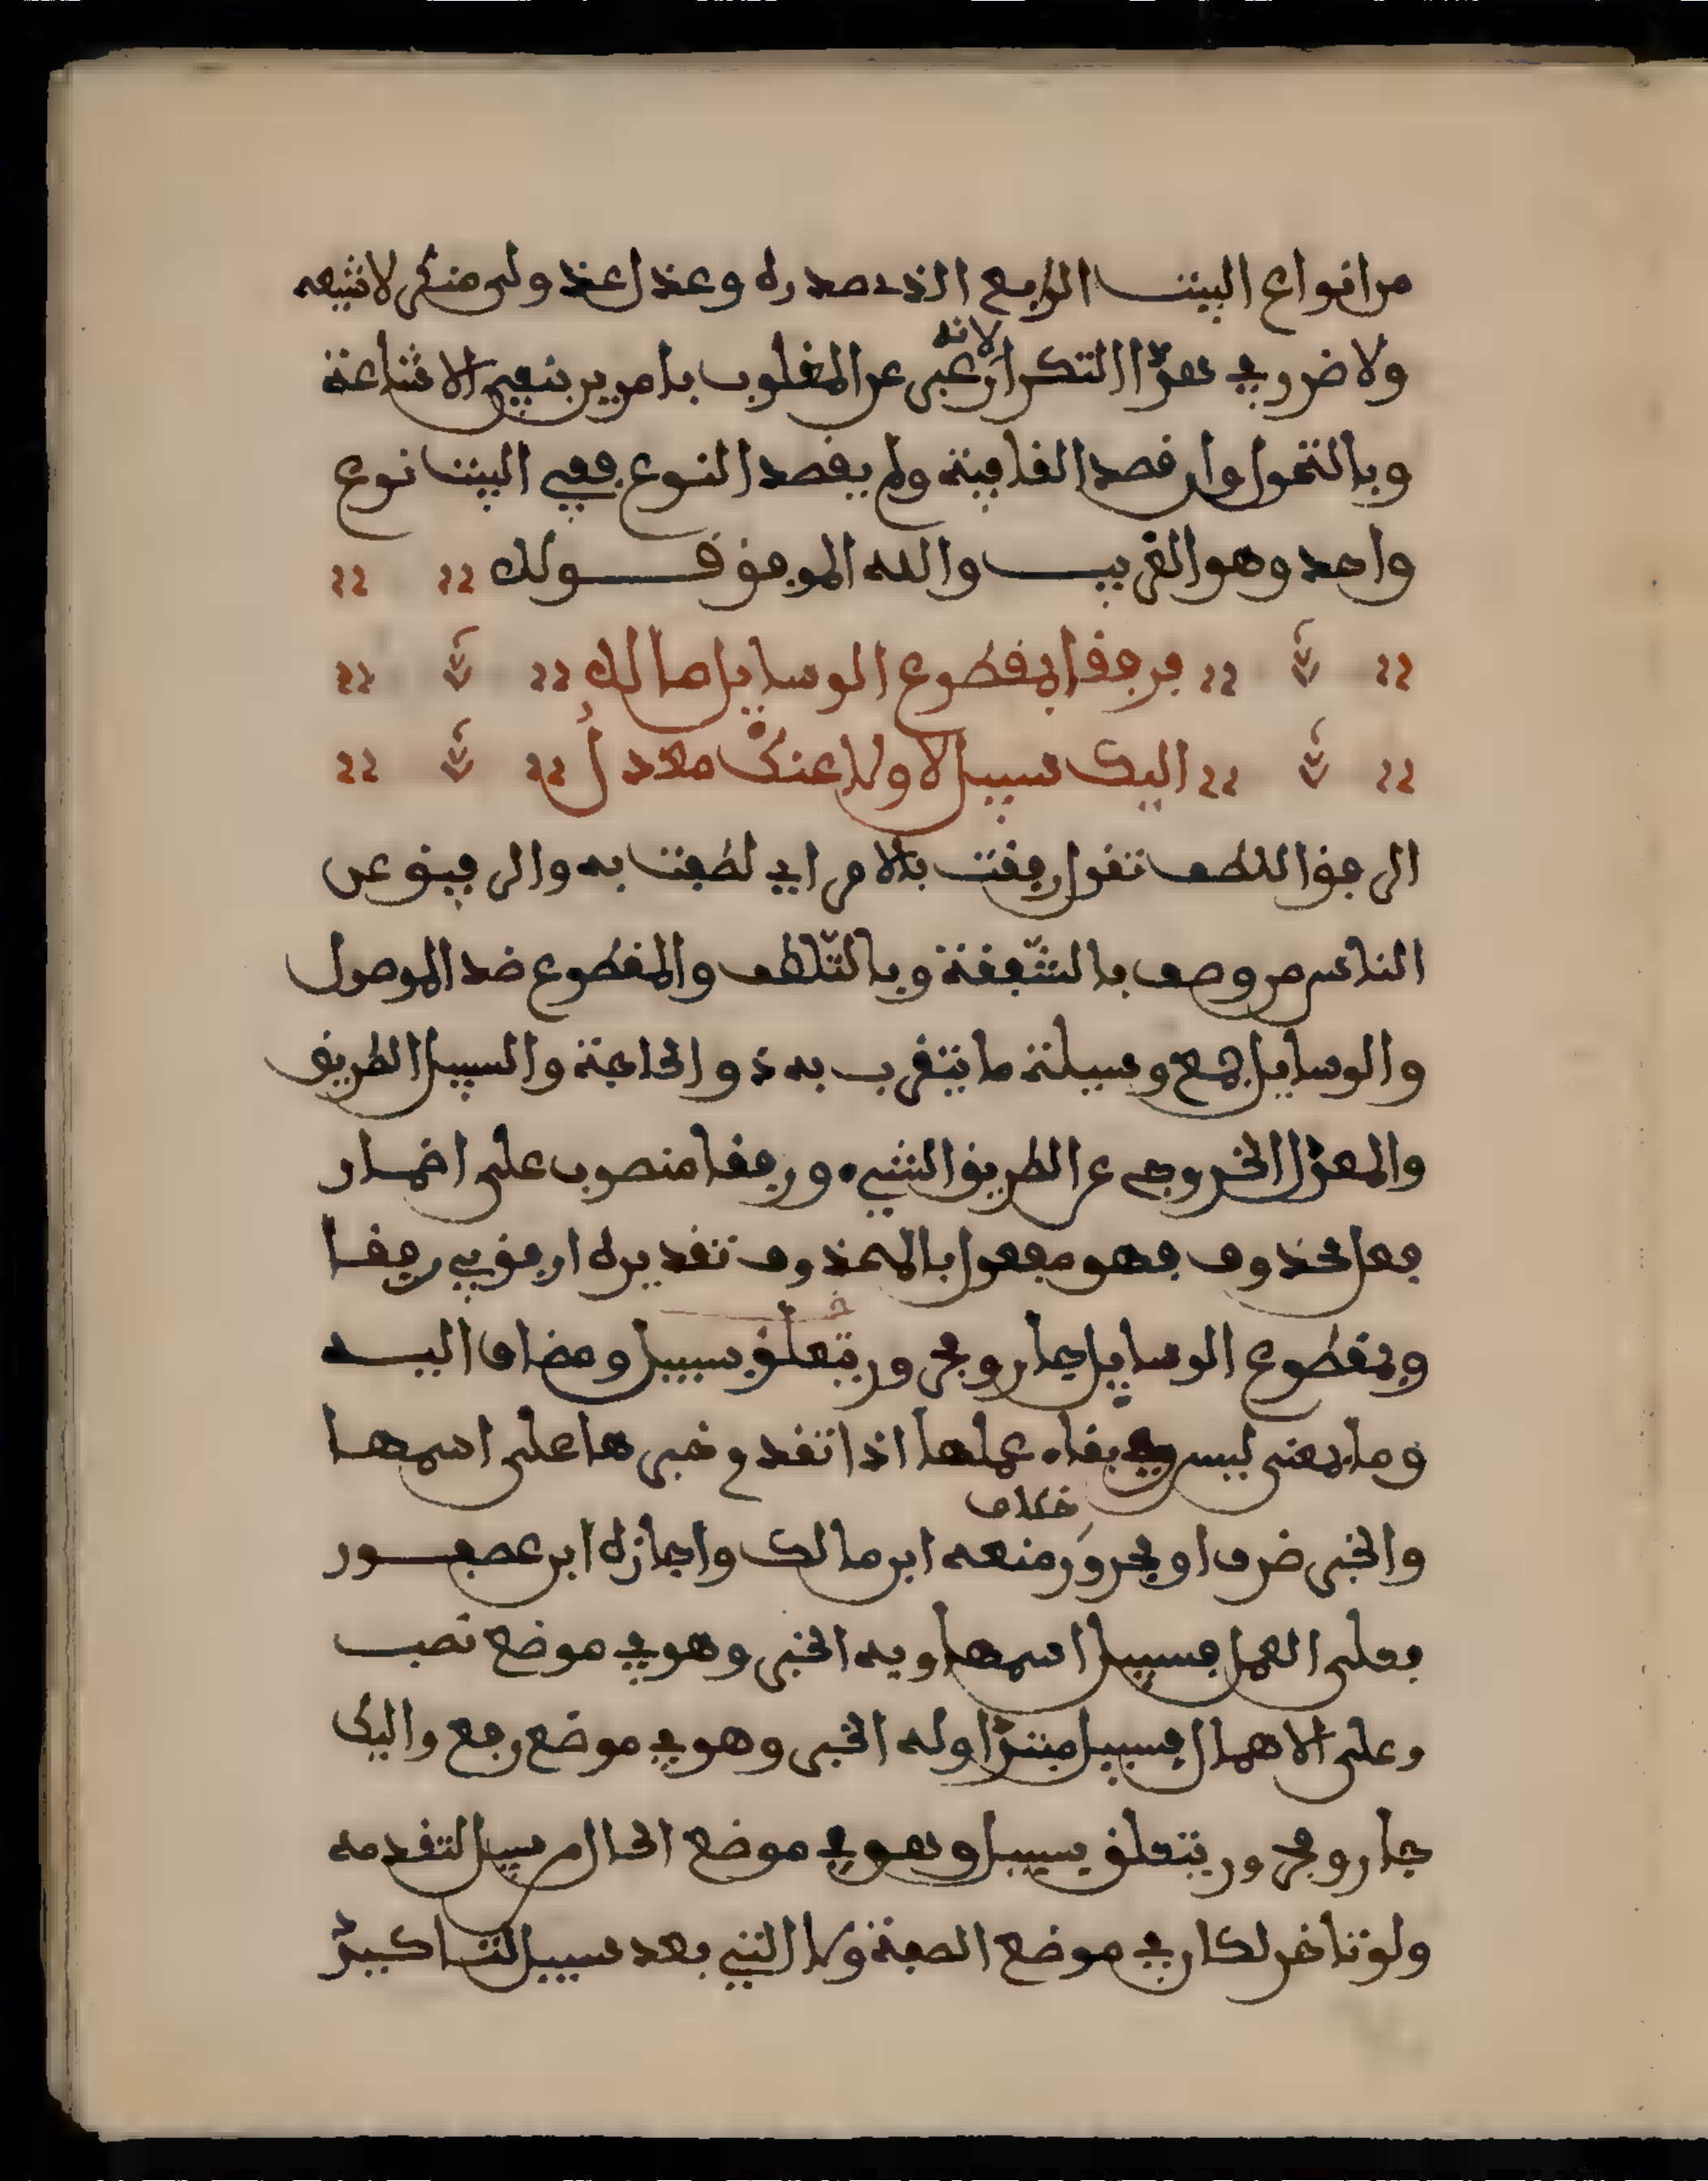 من انواع البيت الرابع الذي صدره وعذل عذولي منكر لا تشيعه
ولا ضرر في هذا التكرار لانه عبر عن المطلوب بامرين بنفي الاشاعة
وبالتحول وان قصد القافية ولم يقصد النوع ففي البيت نوع
واحد وهو الغريب والله الموفق قولك
فرفقا بمقطوع الوسايل ما له
اليك سبيل لا ولا عنك معدل
الرفق اللطف تقول رفقت بالامر اي لطفت به والرفيق من
الناس من وصف بالشفقة وبالتلطف والمقطوع ضد الموصول
والوسايل جمع وسيلة ما يتقرب به ذو الحاجة والسبيل الطريق
والمعدل الخروج عن الطريق الشيء ورفقا منصوب على اضمار
فعل محذوف فهو مفعول بالمحذوف تقديره ارفق بي رفقا
وبمقطوع الوسايل جار ومجرور يتعلق بسبيل ومضاف اليه
وما بمعنى ليس وفي بقاء عملها اذا تقدم خبرها على اسمها
والخبر ضرف او مجرور خلاف منعه ابن مالك واجازه ابن عصفور
فعلى العمل فسبيل اسمها وبه الخبر وهو في موضع نصب
وعلى الاهمال فسبيل مبتدا وله الخبر وهو في موضع رفع واليك
جار ومجرور يتعلق بسبيل وهو في موضع الحال من سبيل لتقدمه
ولو تاخر لكان في موضع الصفة ولا التي بعد سبيل لتاكيد